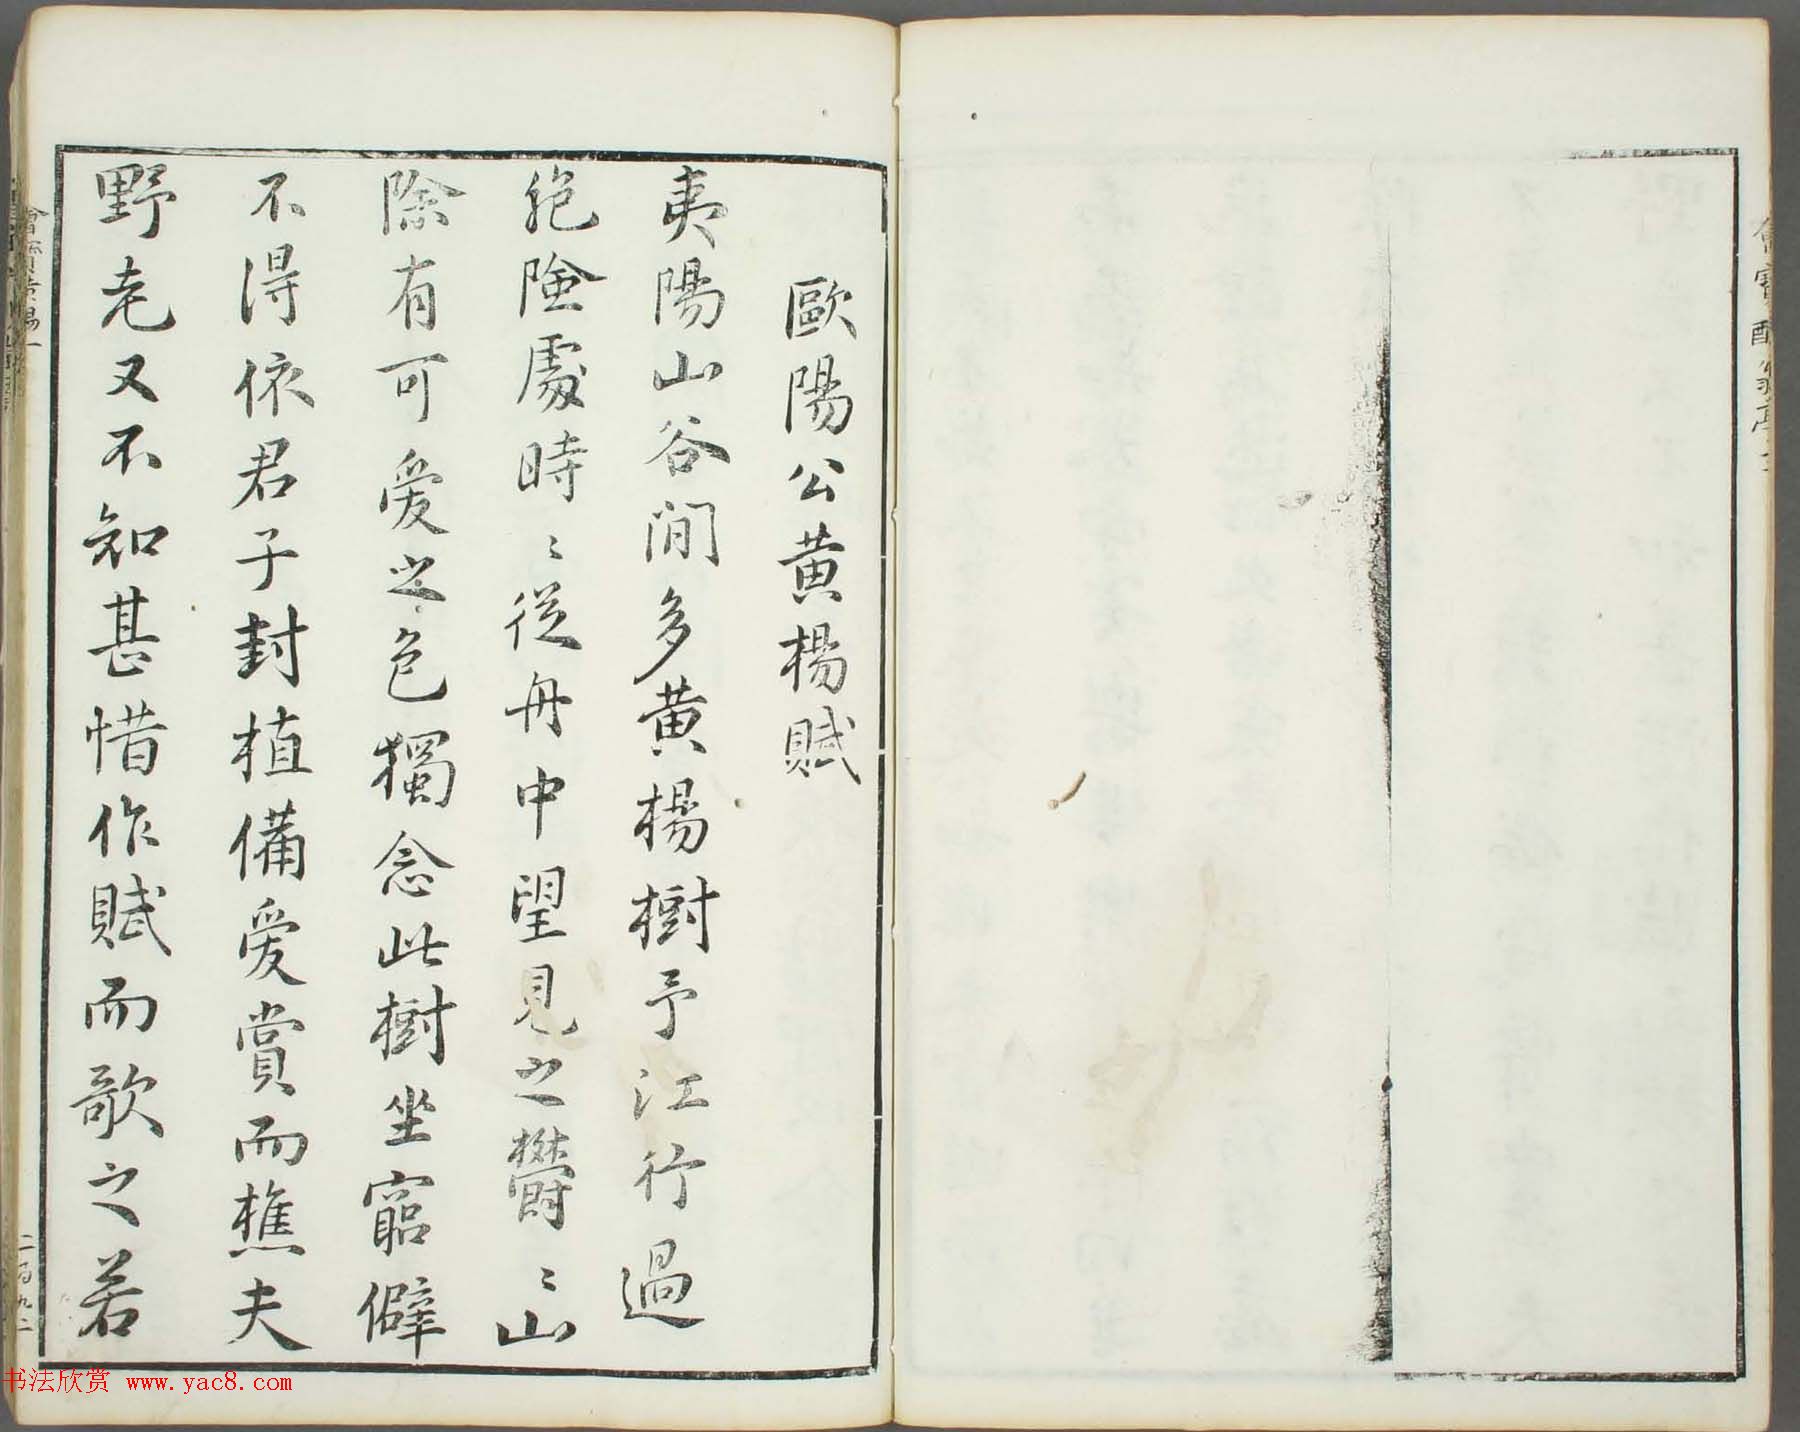 歐陽公黄楊賦
夷陽山谷間多黄楊樹予江行過
絶險處時〻從舟中望見之欝〻山
除有可愛之色獨念此樹坐窮僻
不得依君子封植備愛賞而樵夫
野老又不知甚惜作賦而歌之若
书法欣赏 www.yac8.com